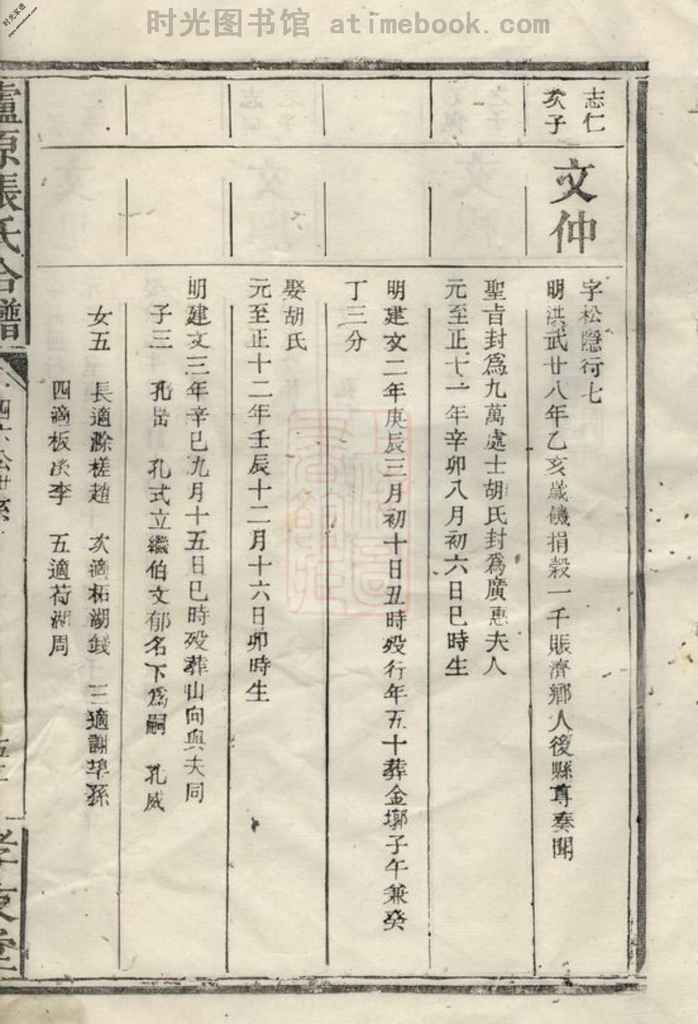 时光图书馆 atimebook.com
志仁
次子
文仲
字松隱行七
明洪武廿八年乙亥歲饑捐穀一千賑濟鄉人後縣尊奏聞
聖旨封爲九萬處士胡氏封爲廣惠夫人
元至正十一年辛卯八月初六日巳時生
明建文二年庚辰三月初十日丑時歿行年五十葬金墎子午兼癸
丁三分
娶胡氏
元至正十二年壬辰十二月十六日卯時生
明建文三年辛巳九月十五日巳時歿葬山向與夫同
子三 孔嵒 孔式立繼伯文郁名下爲嗣 孔威
女五 長適滁槎趙 次適柘湖錢 三適謝埠孫
四適板溪李 五適荷湖周
瀘原張氏合譜
孝友堂